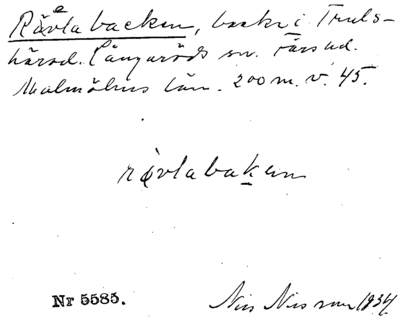 Rävlabacken, backe i Truls-
härad. Långaröds sn. Färs hd.
Malmöhus län. 200 m. v. 45.
rävlabaken
Nr 5585.
Nils Nilsson 1934.